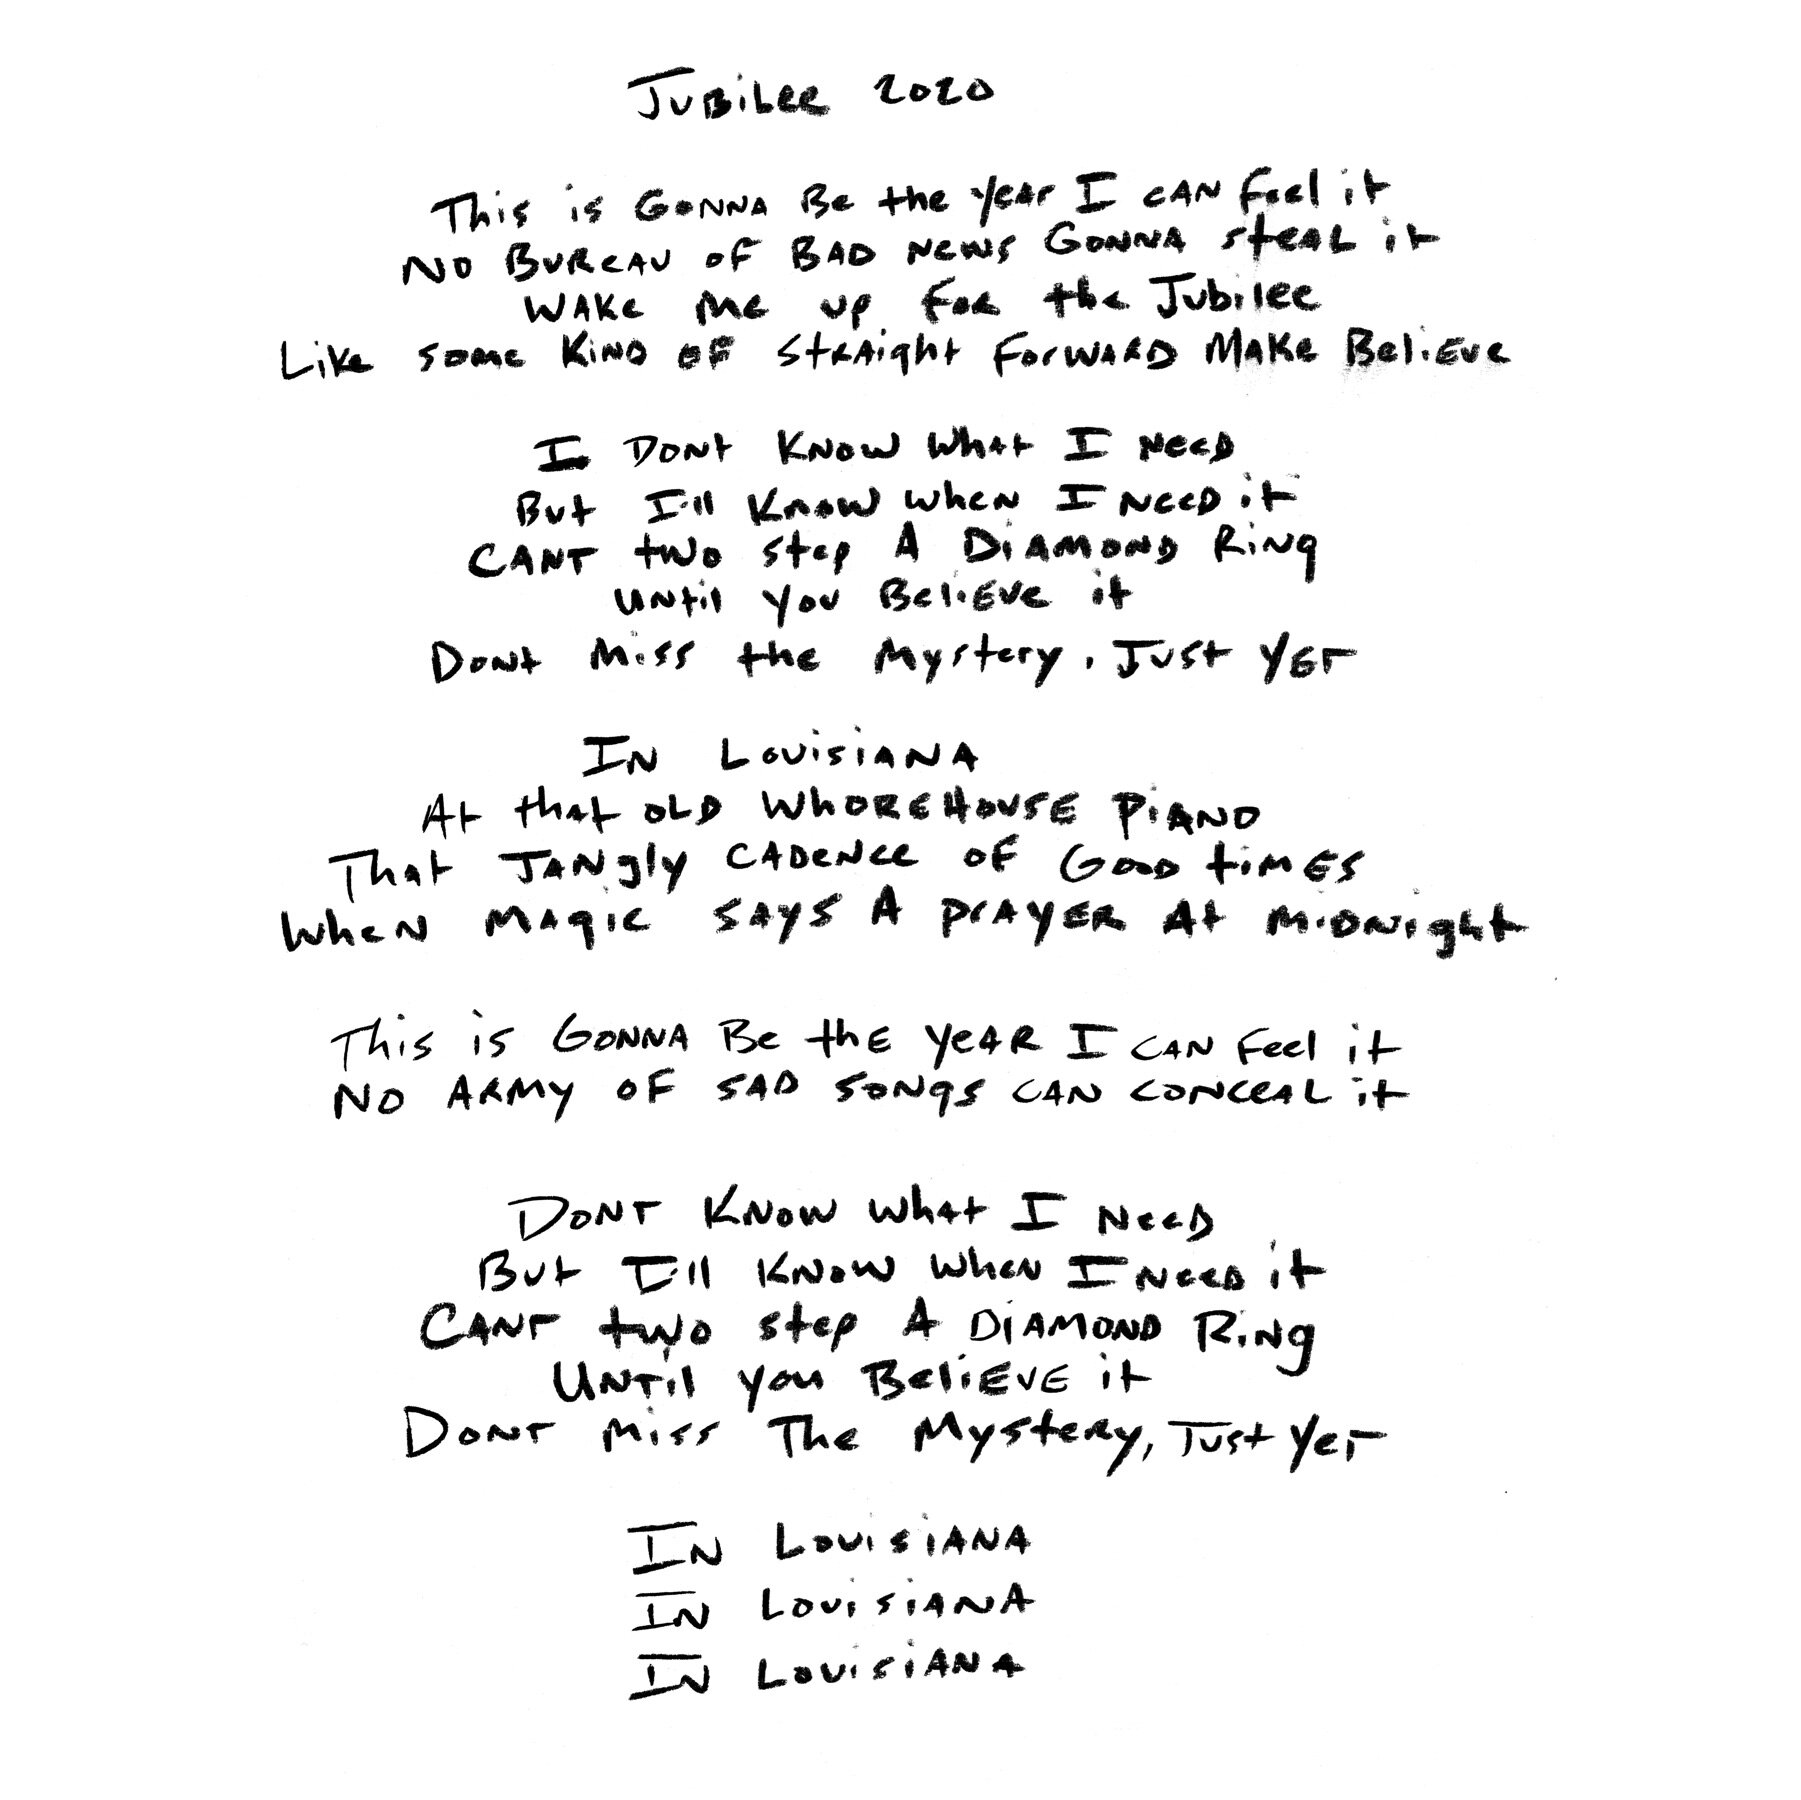 Jubilee 2020
This is Gonna Be the year I can feel it
No Bureau of Bad news Gonna steal it
Wake me up for the Jubilee
Like some Kind of straight forward Make Believe
I Dont Know what I need
But I'll Know when I need it
Cant two step A Diamond Ring
until you Believe it
Dont miss the Mystery, Just Yet
In Louisiana
At that old whorehouse Piano
That Jangly cadence of Good times
When Magic says A prayer At midnight
This is Gonna Be the year I can feel it
No Army of sad songs can conceal it
Dont Know what I need
But I'll Know when I need it
Cant two step A Diamond Ring
Until you Believe it
Dont miss The Mystery, Just Yet
In Louisiana
In Louisiana
In Louisiana